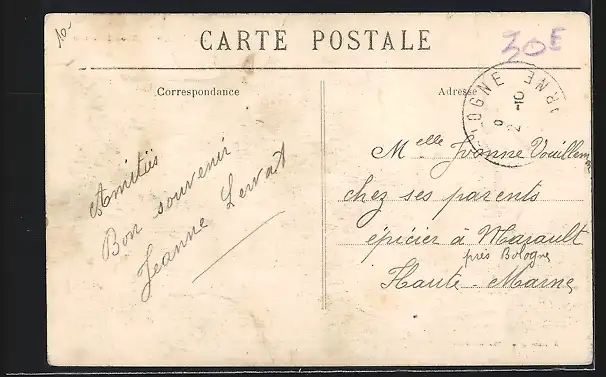 10
CARTE POSTALE
30E
Correspondance
Adresse
OLOGNE
RNE
-10
Amitiés
Bon souvenir
Jeanne
Melle Yvonne Vouillem
chez ses parents
épicier à Marault
près Bologne
Haute-Marne